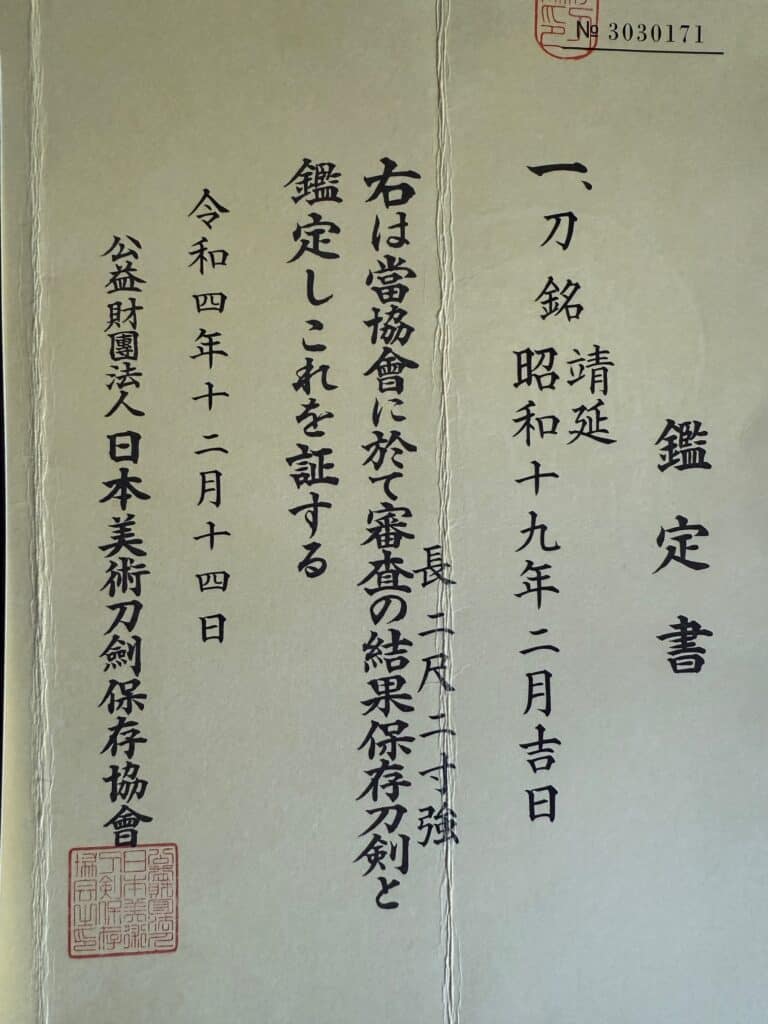 № 3030171
鑑定書
一、刀 銘 靖延
昭和十九年二月吉日
長二尺二寸強
右は當協會に於て審査の結果保存刀剣と
鑑定しこれを証する
令和四年十二月十四日
公益財團法人日本美術刀劍保存協會